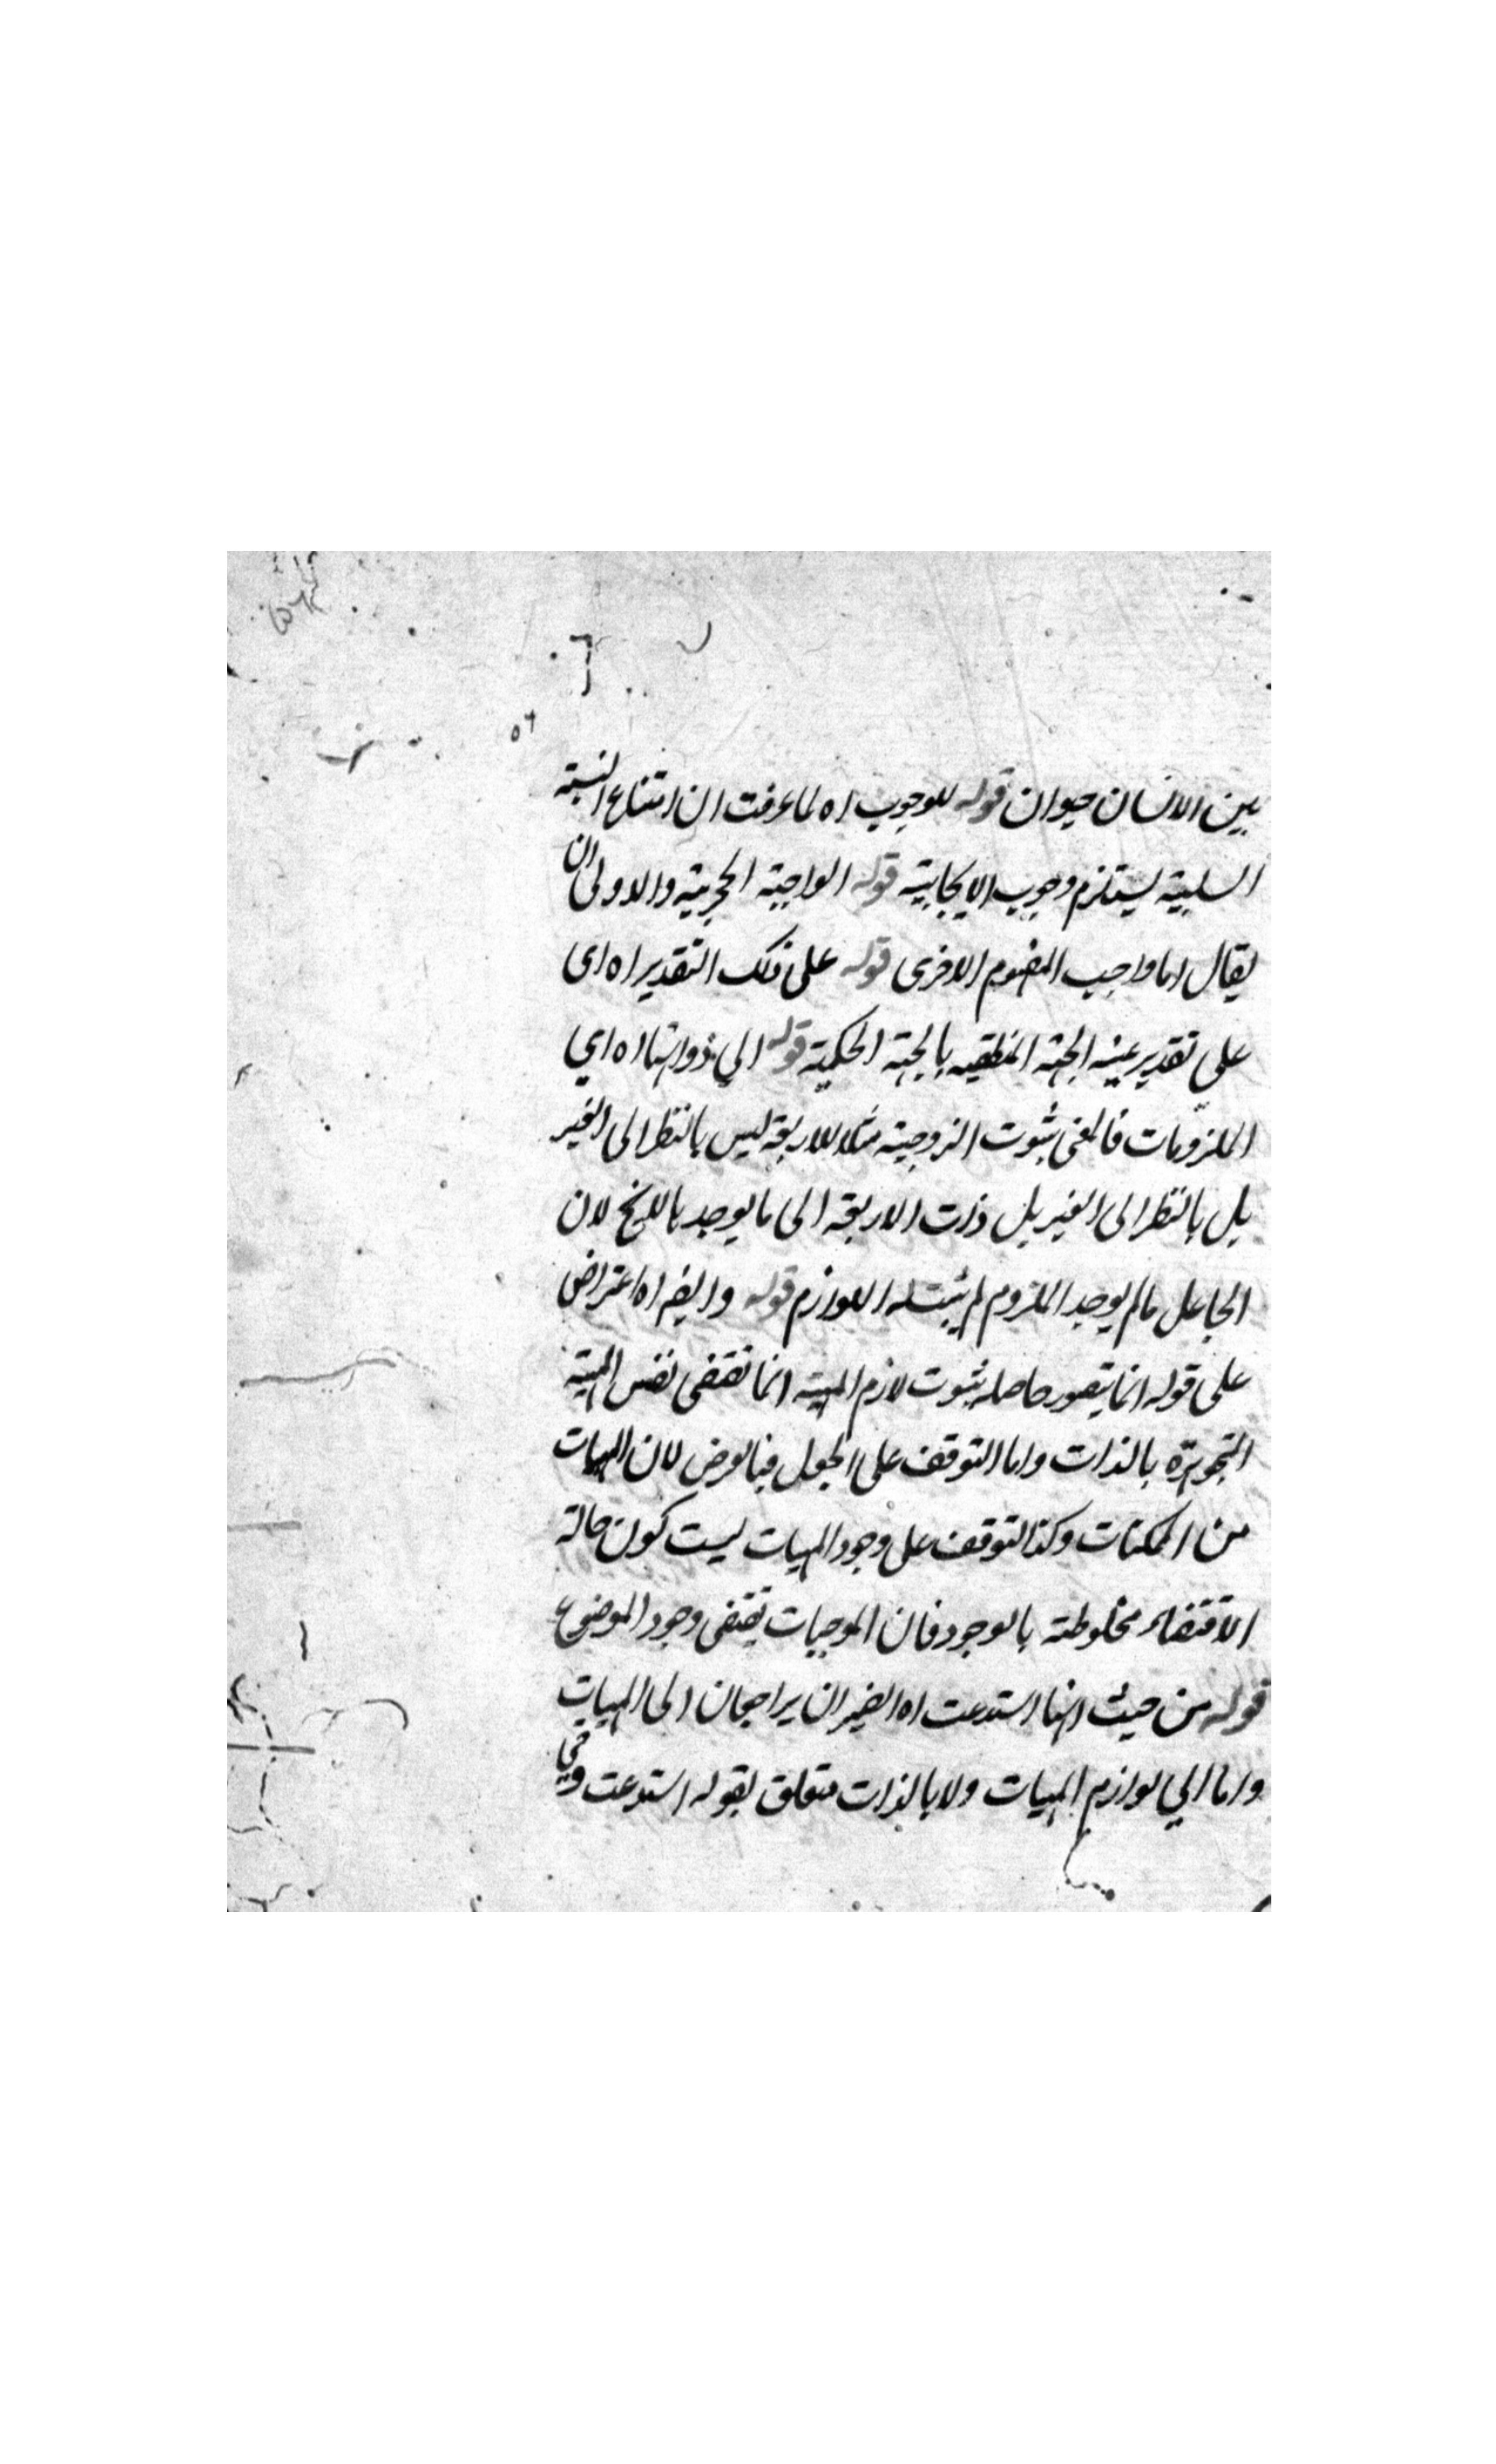 ٥٦
بين الانسان حيوان قوله للوجوب اه لما عرفت ان امتناع النسبة
السلبية يستلزم وجوب الايجابية قوله الواجبة الجزئية والاولى ان
يقال اما واجب المفهوم الاخرى قوله على ذلك التقدير اه اى
على تقدير عينية الجهة المنطقيه بالجهة الحكمية قوله الي ذواتها اه اي
الملزومات فالمعنى ثبوت الزوجية مثلا للاربعة ليس بالنظر الى الغير
بل بالنظر الى الغير بل ذات الاربعة الى ما يوجد لان
الجاعل ما لم يوجد الملزوم لم يثبت له اللوازم قوله وايضا اه اعتراض
على قوله انما يتصور حاصله ثبوت لازم المهية انما تقتضى نفس المهية
المتجوهرة بالذات واما التوقف على الجعل فبالعرض لان المهيات
من الممكنات وكذا التوقف على وجود المهيات ليست كون حالة
الاقتضاء مخلوطة بالوجود فان الموجبات تقتضى وجود الموضوع
قوله من حيث انها استدعت اه الضميران يراجعان الى المهيات
واما الي لوازم المهيات ولا بالذات متعلق بقوله استدعت وفي